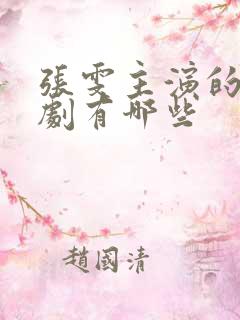 張雯主演的
劇有哪些
趙國清